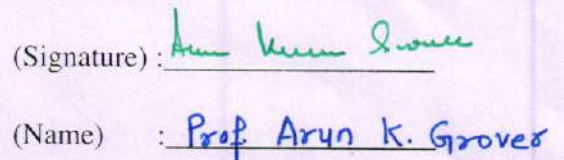 (Signature) : Arun Kumar Grover
(Name) : Prof Arun K. Grover